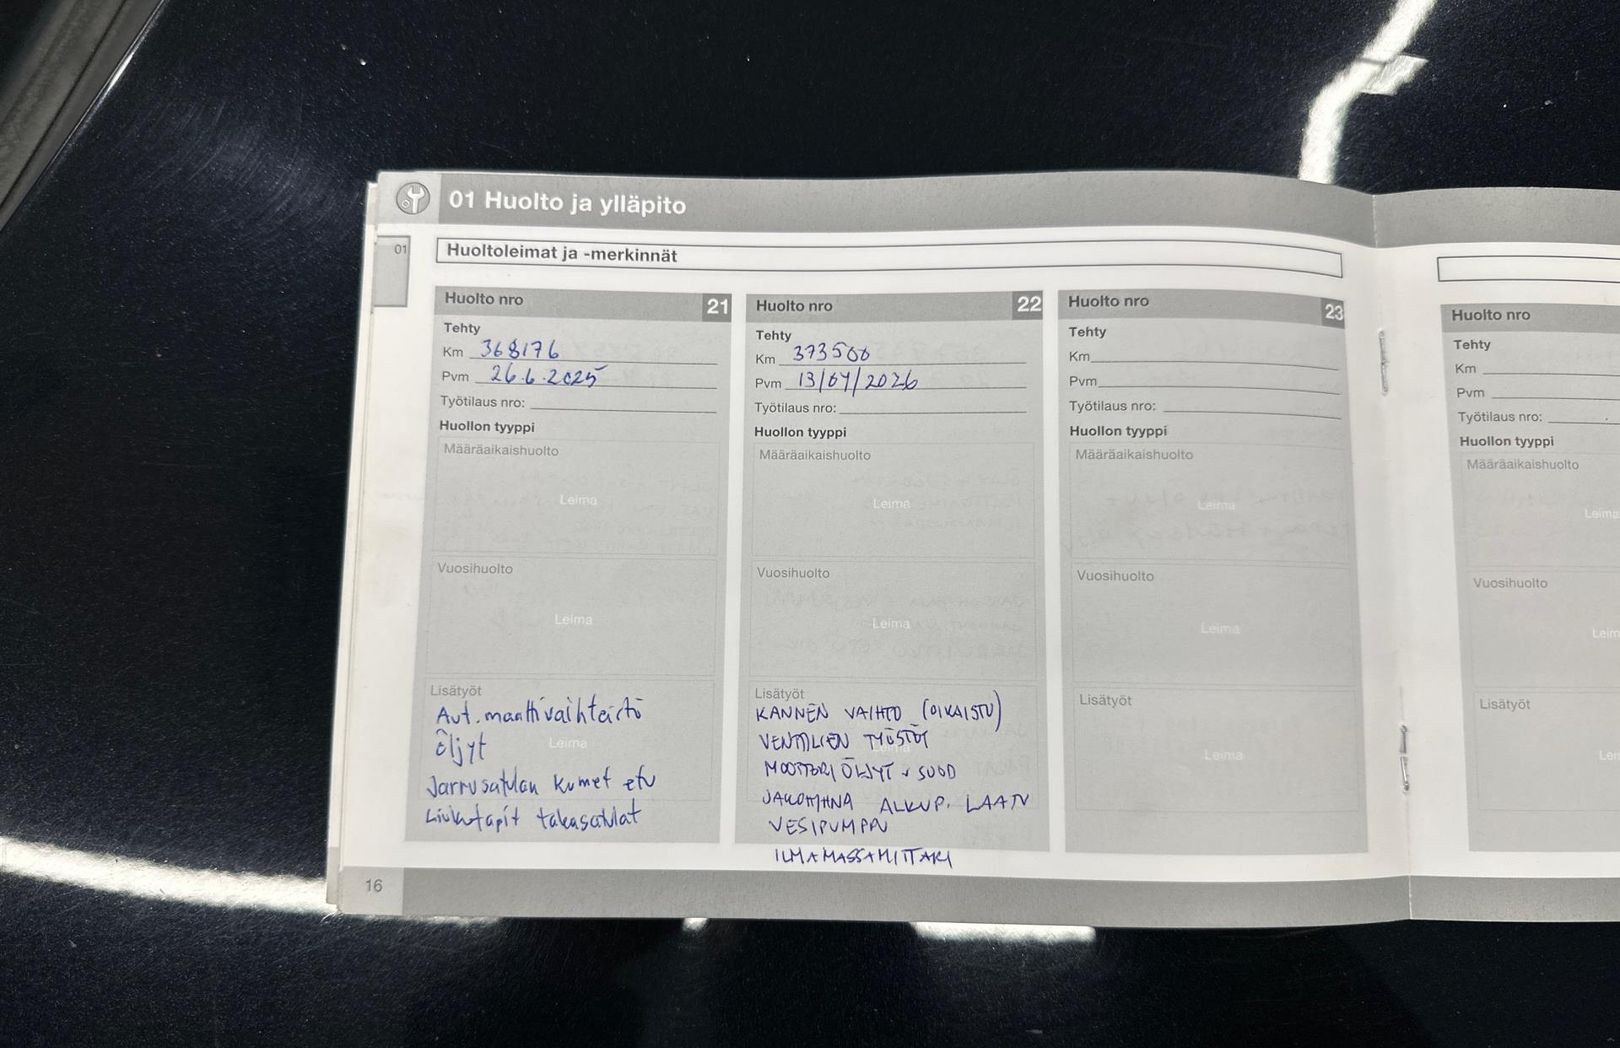 01 Huolto ja ylläpito
01
Huoltoleimat ja -merkinnät
Huolto nro 21
Tehty
Km 368176
Pvm 26.6.2025
Työtilaus nro:
Huollon tyyppi
Määräaikaishuolto
Leima
Vuosihuolto
Leima
Lisätyöt
Aut.maattivaihteisto
Öljyt
Leima
Jarrusatulan kumet etu
Liukutapit takasatulat
Huolto nro 22
Tehty
Km 373500
Pvm 13/04/2026
Työtilaus nro:
Huollon tyyppi
Määräaikaishuolto
Leima
Vuosihuolto
Leima
Lisätyöt
KANNEN VAIHTO (OIKAISTU)
VENTTILIEN TYÖSTÖT
Leima
MOOTTORI ÖLJYT + SUOD
JAKOHIHNA ALKUP. LAATU
VESIPUMPPU
ILMAMASSAMITTARI
Huolto nro 23
Tehty
Km
Pvm
Työtilaus nro:
Huollon tyyppi
Määräaikaishuolto
Leima
Vuosihuolto
Leima
Lisätyöt
Leima
16
Huolto nro
Tehty
Km
Pvm
Työtilaus nro:
Huollon tyyppi
Määräaikaishuolto
Leima
Vuosihuolto
Leim
Lisätyöt
Lei